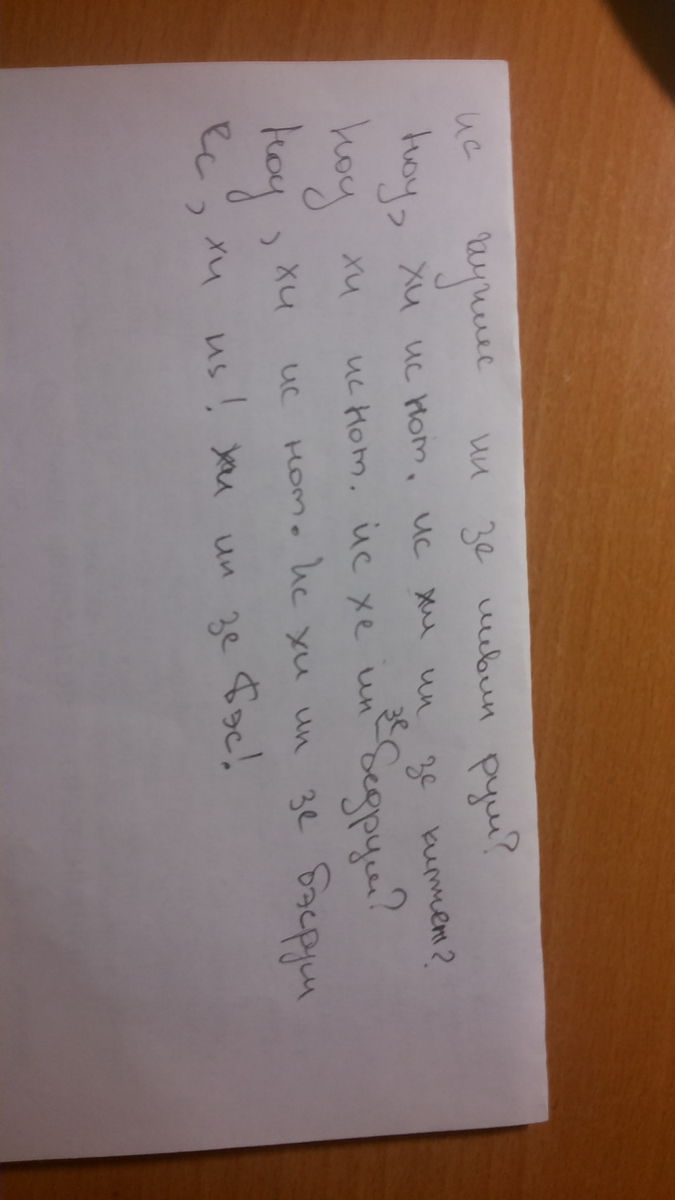 ис ин зе ливин рум?
Ноу, хи ис нот. ис хи ин зе китчен?
Ноу хи ис нот. ис хе ин зе бедрум?
Ноу, хи ис нот. Ис хи ин зе бэсрум
ес, хи из! хи ин зе бэс!